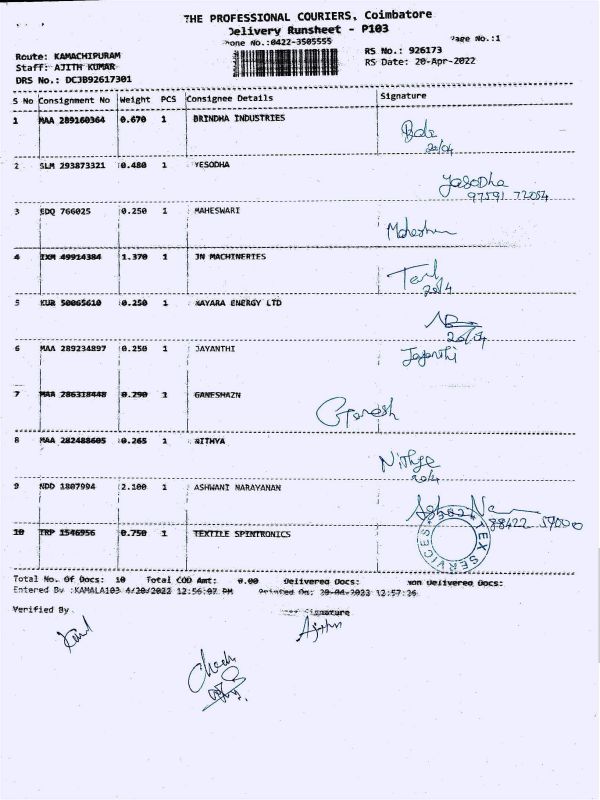 THE PROFESSIONAL COURIERS, Coimbatore
Delivery Runsheet - P103
Phone No.:0422-3505555 Page No.:1
Route: KAMACHIPURAM RS No.: 926173
Staff: AJITH KUMAR RS Date: 20-Apr-2022
DRS No.: DCJB92617301
S No Consignment No Weight PCS Consignee Details Signature
1 MAA 289160364 0.670 1 BRINDHA INDUSTRIES
20/04
2 SLM 293873321 0.480 1 YESODHA
Yasodha
97591 72054
3 EDQ 766025 0.250 1 MAHESWARI
4 IXM 49914384 1.370 1 JN MACHINERIES
20/4
5 KUR 50065610 0.250 1 NAYARA ENERGY LTD
20/04
6 MAA 289234897 0.250 1 JAYANTHI
Jayanthi
7 MAA 286318448 0.290 1 GANESHAZN
Ganesh
8 MAA 282488605 0.265 1 NITHYA
Nithya
20/4
9 NDD 1807994 2.100 1 ASHWANI NARAYANAN
88422 59000
10 TRP 1546956 0.750 1 TEXTILE SPINTRONICS
TEX SERVICES
Total No. Of Docs: 10 Total COD Amt: 0.00 Delivered Docs: Non Delivered Docs:
Entered By :KAMALA103 4/20/2022 12:56:07 PM Printed On: 20-04-2022 12:57:36
Verified By Signature